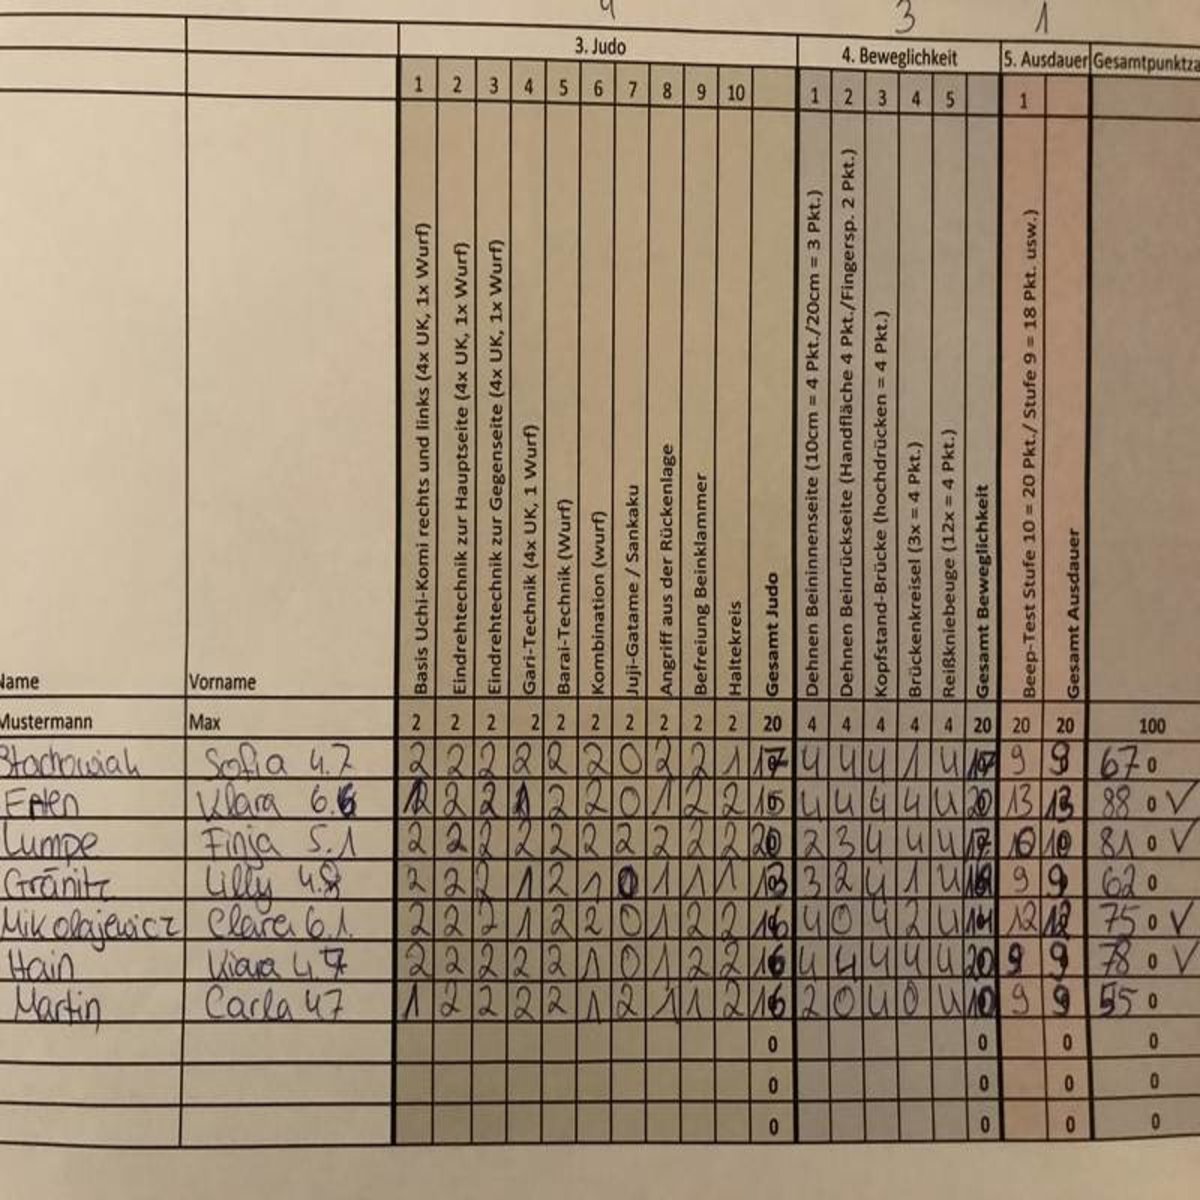 4 3 1
3. Judo 4. Beweglichkeit 5. Ausdauer Gesamtpunktza
1 2 3 4 5 6 7 8 9 10 1 2 3 4 5 1
Basis Uchi-Komi rechts und links (4x UK, 1x Wurf)
Eindrehtechnik zur Hauptseite (4x UK, 1x Wurf)
Eindrehtechnik zur Gegenseite (4x UK, 1x Wurf)
Gari-Technik (4x UK, 1 Wurf)
Barai-Technik (Wurf)
Kombination (wurf)
Juji-Gatame / Sankaku
Angriff aus der Rückenlage
Befreiung Beinklammer
Haltekreis
Gesamt Judo
Dehnen Beininnenseite (10cm = 4 Pkt./20cm = 3 Pkt.)
Dehnen Beinrückseite (Handfläche 4 Pkt./Fingersp. 2 Pkt.)
Kopfstand-Brücke (hochdrücken = 4 Pkt.)
Brückenkreisel (3x = 4 Pkt.)
Reißkniebeuge (12x = 4 Pkt.)
Gesamt Beweglichkeit
Beep-Test Stufe 10 = 20 Pkt./ Stufe 9 = 18 Pkt. usw.)
Gesamt Ausdauer
Name Vorname
Mustermann Max 2 2 2 2 2 2 2 2 2 2 20 4 4 4 4 4 20 20 20 100
Stachowiak Sofia 4.7 2 2 2 2 2 2 0 2 2 1 17 4 4 4 1 4 17 9 9 67 0
Klara 6.6 2 2 2 1 2 2 0 1 2 2 4 4 4 4 4 20 13 13 88 0 ✓
Lumpe Finja 5.1 2 2 2 2 2 2 2 2 2 2 20 2 3 4 4 4 17 10 10 81 0 ✓
Gränitz Lilly 4.8 2 2 2 1 2 1 0 1 1 1 13 3 2 4 1 4 9 9 62 0
Mikolajewicz Clara 6.1. 2 2 2 1 2 2 0 1 2 2 16 4 0 4 2 4 14 12 12 75 0 ✓
Hain Kiara 4.7 2 2 2 2 2 1 0 1 2 2 16 4 4 4 4 4 20 9 9 78 0 ✓
Martin Carla 4.7 1 2 2 2 2 1 2 1 1 2 16 2 0 4 0 4 10 9 9 55 0
0 0 0 0
0 0 0 0
0 0 0 0